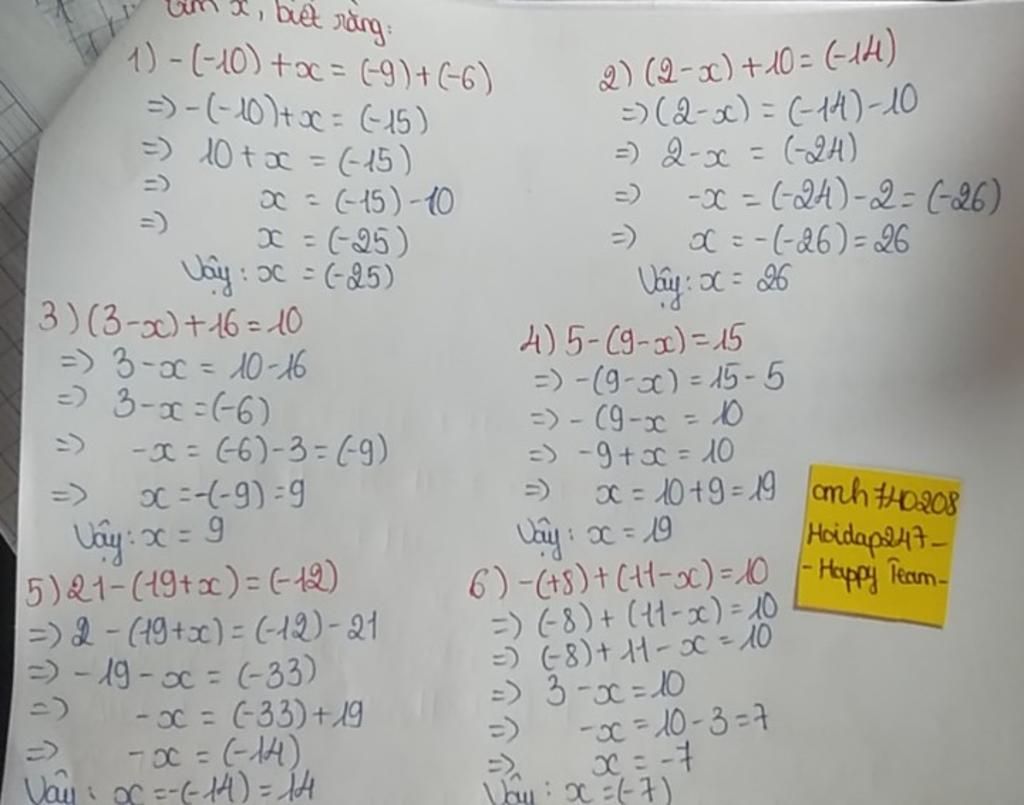 tìm x, biết rằng:
1) -(-10) + x = (-9) + (-6)
=) -(-10) + x = (-15)
=) 10 + x = (-15)
=) x = (-15) - 10
=) x = (-25)
Vậy: x = (-25)
2) (2 - x) + 10 = (-14)
=) (2 - x) = (-14) - 10
=) 2 - x = (-24)
=) -x = (-24) - 2 = (-26)
=) x = -(-26) = 26
Vậy: x = 26
3) (3 - x) + 16 = 10
=) 3 - x = 10 - 16
=) 3 - x = (-6)
=) -x = (-6) - 3 = (-9)
=) x = -(-9) = 9
Vậy: x = 9
4) 5 - (9 - x) = 15
=) -(9 - x) = 15 - 5
=) - (9 - x = 10
=) -9 + x = 10
=) x = 10 + 9 = 19
Vậy: x = 19
cmh740208
Hoidap247 -
- Happy Team -
5) 21 - (19 + x) = (-12)
=) 2 - (19 + x) = (-12) - 21
=) -19 - x = (-33)
=) -x = (-33) + 19
=) -x = (-14)
Vậy: x = -(-14) = 14
6) -(+8) + (11 - x) = 10
=) (-8) + (11 - x) = 10
=) (-8) + 11 - x = 10
=) 3 - x = 10
=) -x = 10 - 3 = 7
=) x = -7
Vậy: x = (-7)